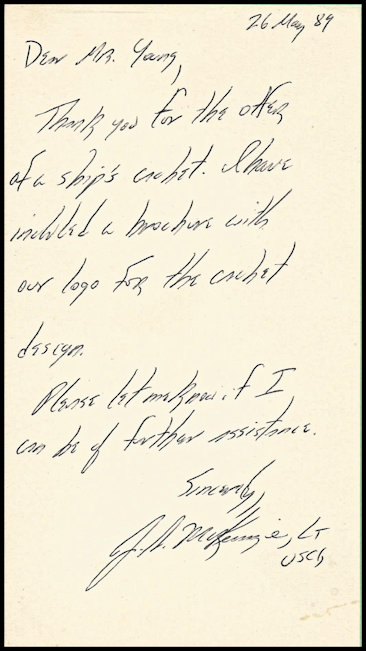 26 May 89
Dear Mr. Young,
Thank you for the offer
of a ship's cachet. I have
included a brochure with
our logo for the cachet
design.
Please let me know if I
can be of further assistance.
Sincerely,
J. A. McKenzie, LT
USCG